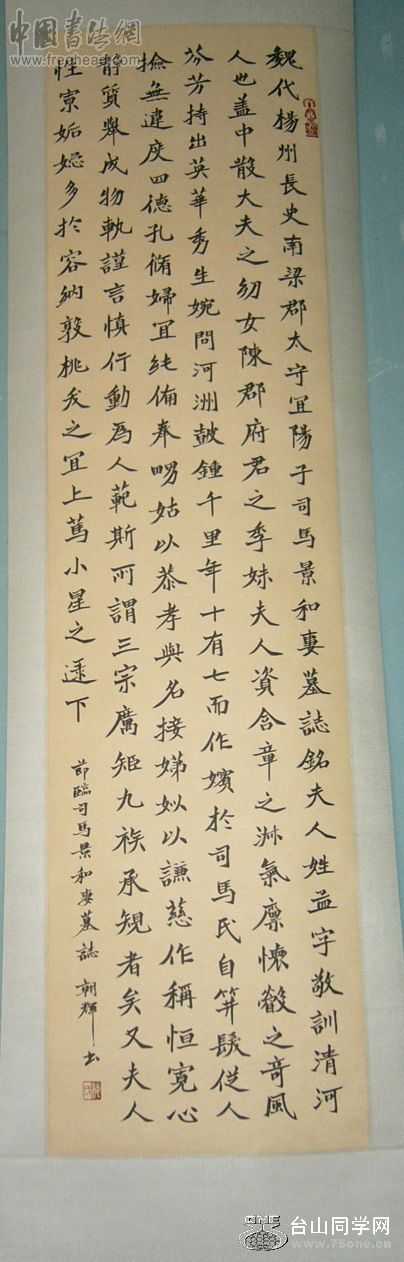 中國書法網
www.freehead.com
魏代楊州長史南梁郡太守宜陽子司馬景和妻墓誌銘夫人姓孟字敬訓清河
人也蓋中散大夫之幼女陳郡府君之季妹夫人資含章之淋氣禀懷叡之奇風
芬芳特出英華秀生婉問河洲鼓鍾千里年十有七而作嬪於司馬氏自笄髮從人
撿無違度四德孔脩婦宜純備奉甥姑以恭孝與名接娣姒以謙慈作稱恒寬心
静質舉成物軌謹言慎行動為人範斯所謂三宗厲矩九族承規者矣又夫人
性寡妬嫉多於容納敦桃夭之宜上篤小星之逮下
節臨司馬景和妻墓誌 朝輝書
台山同学网
www.75one.cn